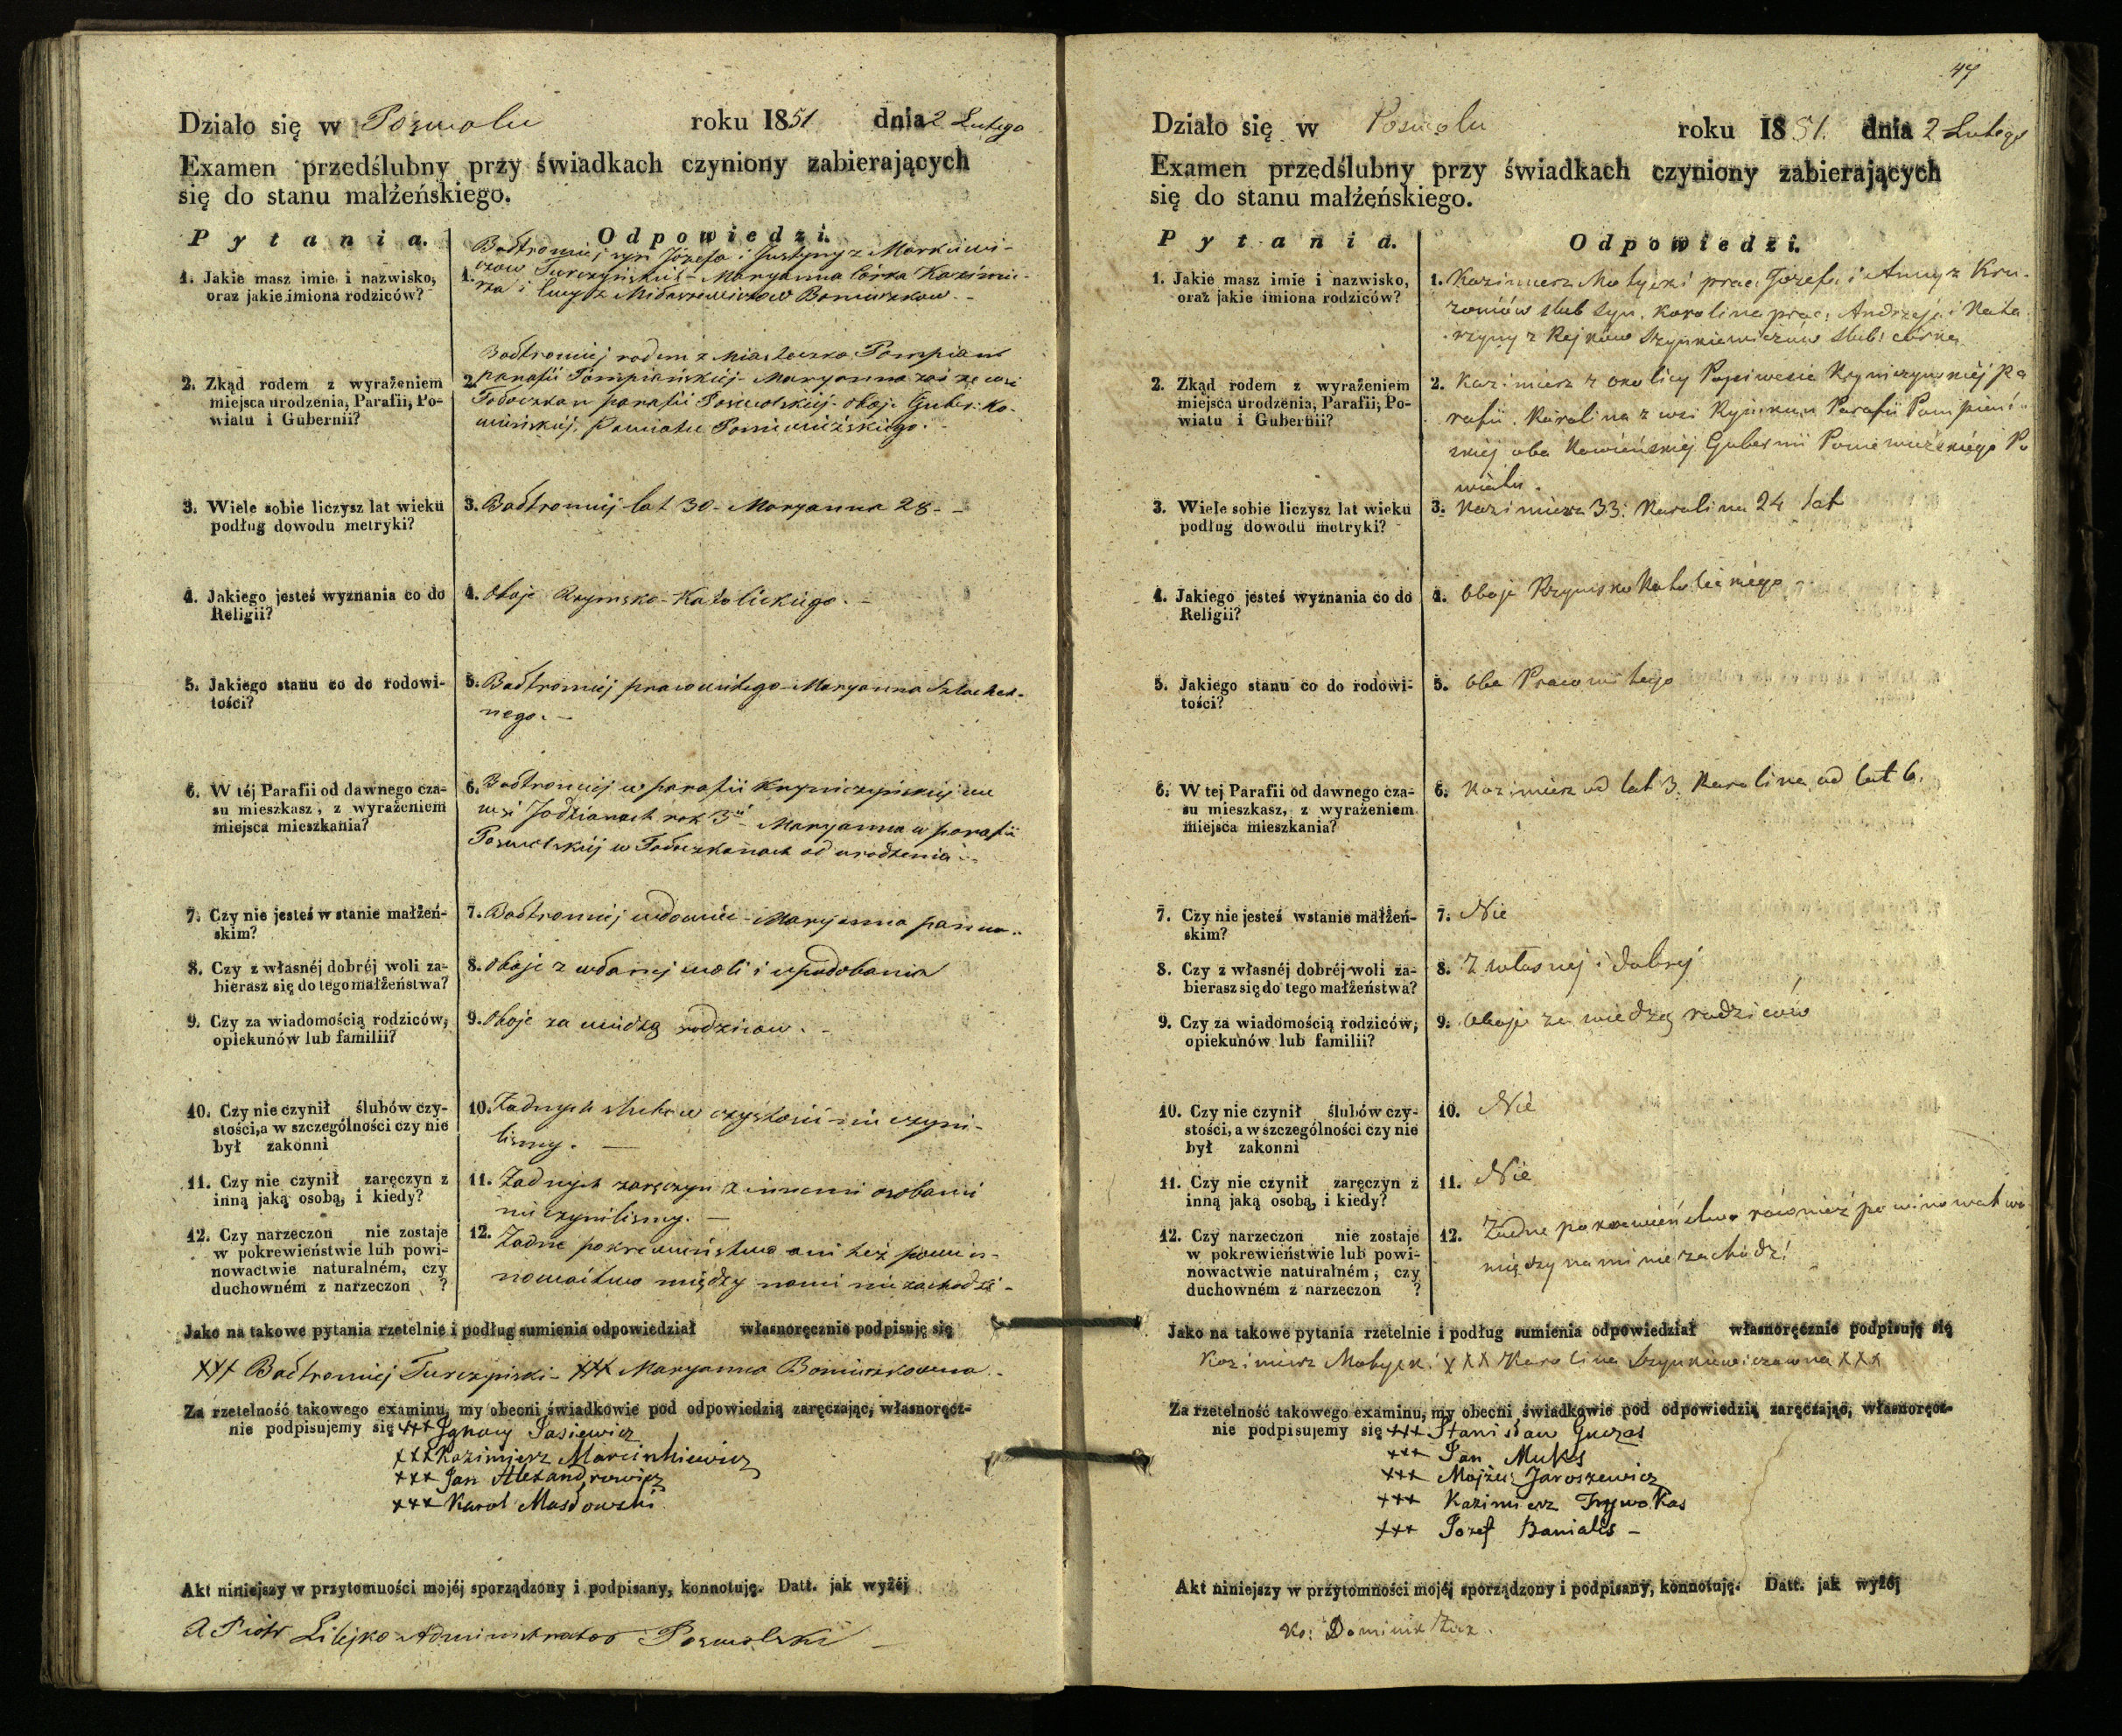 Działo się w Poswolu roku 1851 dnia 2 Lutego
Examen przedślubny przy świadkach czyniony zabierających
się do stanu małżeńskiego.
Pytania. Odpowiedzi.
1. Jakie masz imie i nazwisko,
oraz jakie imiona rodziców?
1. Bałtromiej syn Józefa i Justyny z Markiewi-
czow Turczyńskich - Maryanna Córka Kazimie-
rza i Łucyi z Miłaszewiczow Boniuszkow. -
2. Zkąd rodem z wyrażeniem
miejsca urodzenia, Parafii, Po-
wiatu i Gubernii?
Bałtromiej rodem z Miasteczka Pompian
2. parafii Pompiańskiej - Maryanna zaś ze wsi
parafii Poswolskiej. oboje Guber: Ko-
wieńskiej, Powiatu Poniewieżskiego. -
3. Wiele sobie liczysz lat wieku
podług dowodu metryki?
3. Bałtromiej lat 30 - Maryanna 28 - -
4. Jakiego jesteś wyznania co do
Religii?
4. Oboje Rzymsko-Katolickiego. -
5. Jakiego stanu co do rodowi-
tości?
5. Bałtromiej prawowitego - Maryanna Szlachet-
nego. -
6. W téj Parafii od dawnego cza-
su mieszkasz, z wyrażeniem
miejsca mieszkania?
6. Bałtromiej w parafii Kryniczyńskiej we
wsi rok 3ci - Maryanna w parafii
Poswolskiej w od urodzenia -
7. Czy nie jesteś w stanie małżeń-
skim?
7. Bałtromiej wdowiec - Maryanna panna -
8. Czy z własnéj dobréj woli za-
bierasz się do tego małżeństwa?
8. Oboje z własnej woli i upodobania
9. Czy za wiadomością rodziców,
opiekunów lub familii?
9. Oboje za wiedzą rodzicow. -
10. Czy nie czynił ślubów czy-
stości, a w szczególności czy nie
był zakonni
10. Żadnych slubow czystości nie czyni-
lismy. -
11. Czy nie czynił zaręczyn z
inną jaką osobą, i kiedy?
11. Żadnych zaręczyn z innemi osobami
nie czynilismy. -
12. Czy narzeczon nie zostaje
w pokrewieństwie lub powi-
nowactwie naturalném, czy
duchowném z narzeczon ?
12. Żadne pokrewieństwo ani też powin-
nowactwo między nami nie zachodzi -
Jako na takowe pytania rzetelnie i podług sumienia odpowiedział własnoręcznie podpisuję się
XXX Bałtromiej Turczyński - XXX Maryanna Boniuszkowna -
Za rzetelność takowego examinu, my obecni świadkowie pod odpowiedzią zaręczając, własnoręcz-
nie podpisujemy się XXX Jgnacy Jasiewicz
XXX Kazimierz Marcinkiewicz
XXX Jan Alexandrowicz
XXX Karol Masłowski
Akt niniejszy w przytomności mojéj sporządzony i podpisany, konnotuję. Datt. jak wyżéj
X Piotr Lilejko Administrator Poswolski -
47
Działo się w Poswolu roku 1851. dnia 2 Lutego
Examen przedślubny przy świadkach czyniony zabierających
się do stanu małżeńskiego.
Pytania. Odpowiedzi.
1. Jakie masz imie i nazwisko,
oraz jakie imiona rodziców?
1. Kazimierz Matycki prac: Jozefa i Anny z Kru-
zoniów slub syn. Karolina prac: Andrzeja i Kata
rzyny z Rejkow Szynkiewiczów slub: córka
2. Zkąd rodem z wyrażeniem
miejsca urodzenia, Parafii, Po-
wiatu i Gubernii?
2. Kazimierz z okolicy Popiwesie Kryniczynskiej pa
rafii. Karolina z wsi Parafii Pompiań-
skiej oba Kowieńskiej Gubernii Poniewieżskiego Po
wiatu.
3. Wiele sobie liczysz lat wieku
podług dowodu metryki?
3. Kazimierz 33: Karolina 24 lat
4. Jakiego jesteś wyznania co do
Religii?
4. Oboje Rzymsko Katolickiego -
5. Jakiego stanu co do rodowi-
tości?
5. Oba Prawowitego
6. W tej Parafii od dawnego cza-
su mieszkasz, z wyrażeniem
miejsca mieszkania?
6. Kazimierz od lat 3. Karolina od lat 6.
7. Czy nie jesteś wstanie małżeń-
skim?
7. Nie
8. Czy z własnéj dobréj woli za-
bierasz się do tego małżeństwa?
8. Z własnej i dobrej
9. Czy za wiadomością rodziców,
opiekunów lub familii?
9. Oboje za wiedzą rodziców
10. Czy nie czynił ślubów czy-
stości, a w szczególności czy nie
był zakonni
10. Nie
11. Czy nie czynił zaręczyn z
inną jaką osobą, i kiedy?
11. Nie
12. Czy narzeczon nie zostaje
w pokrewieństwie lub powi-
nowactwie naturalném, czy
duchowném z narzeczon ?
12. Żadne pokrewieństwo również powinowatwo
między nami nie zachodzi
Jako na takowe pytania rzetelnie i podług sumienia odpowiedział własnoręcznie podpisuję się
Kazimierz Matycki XXX Karolina Szynkiewiczowna XXX
Za rzetelność takowego examinu, my obecni świadkowie pod odpowiedzią zaręczając, własnoręcz-
nie podpisujemy się XXX Stanisław Guczas
XXX Jan Muks
XXX Mojżesz Jaroszewicz
XXX Kazimierz Trywokas
XXX Jozef Banialis -
Akt niniejszy w przytomności mojéj sporządzony i podpisany, konnotuję. Datt. jak wyżéj
Ks: Dominik